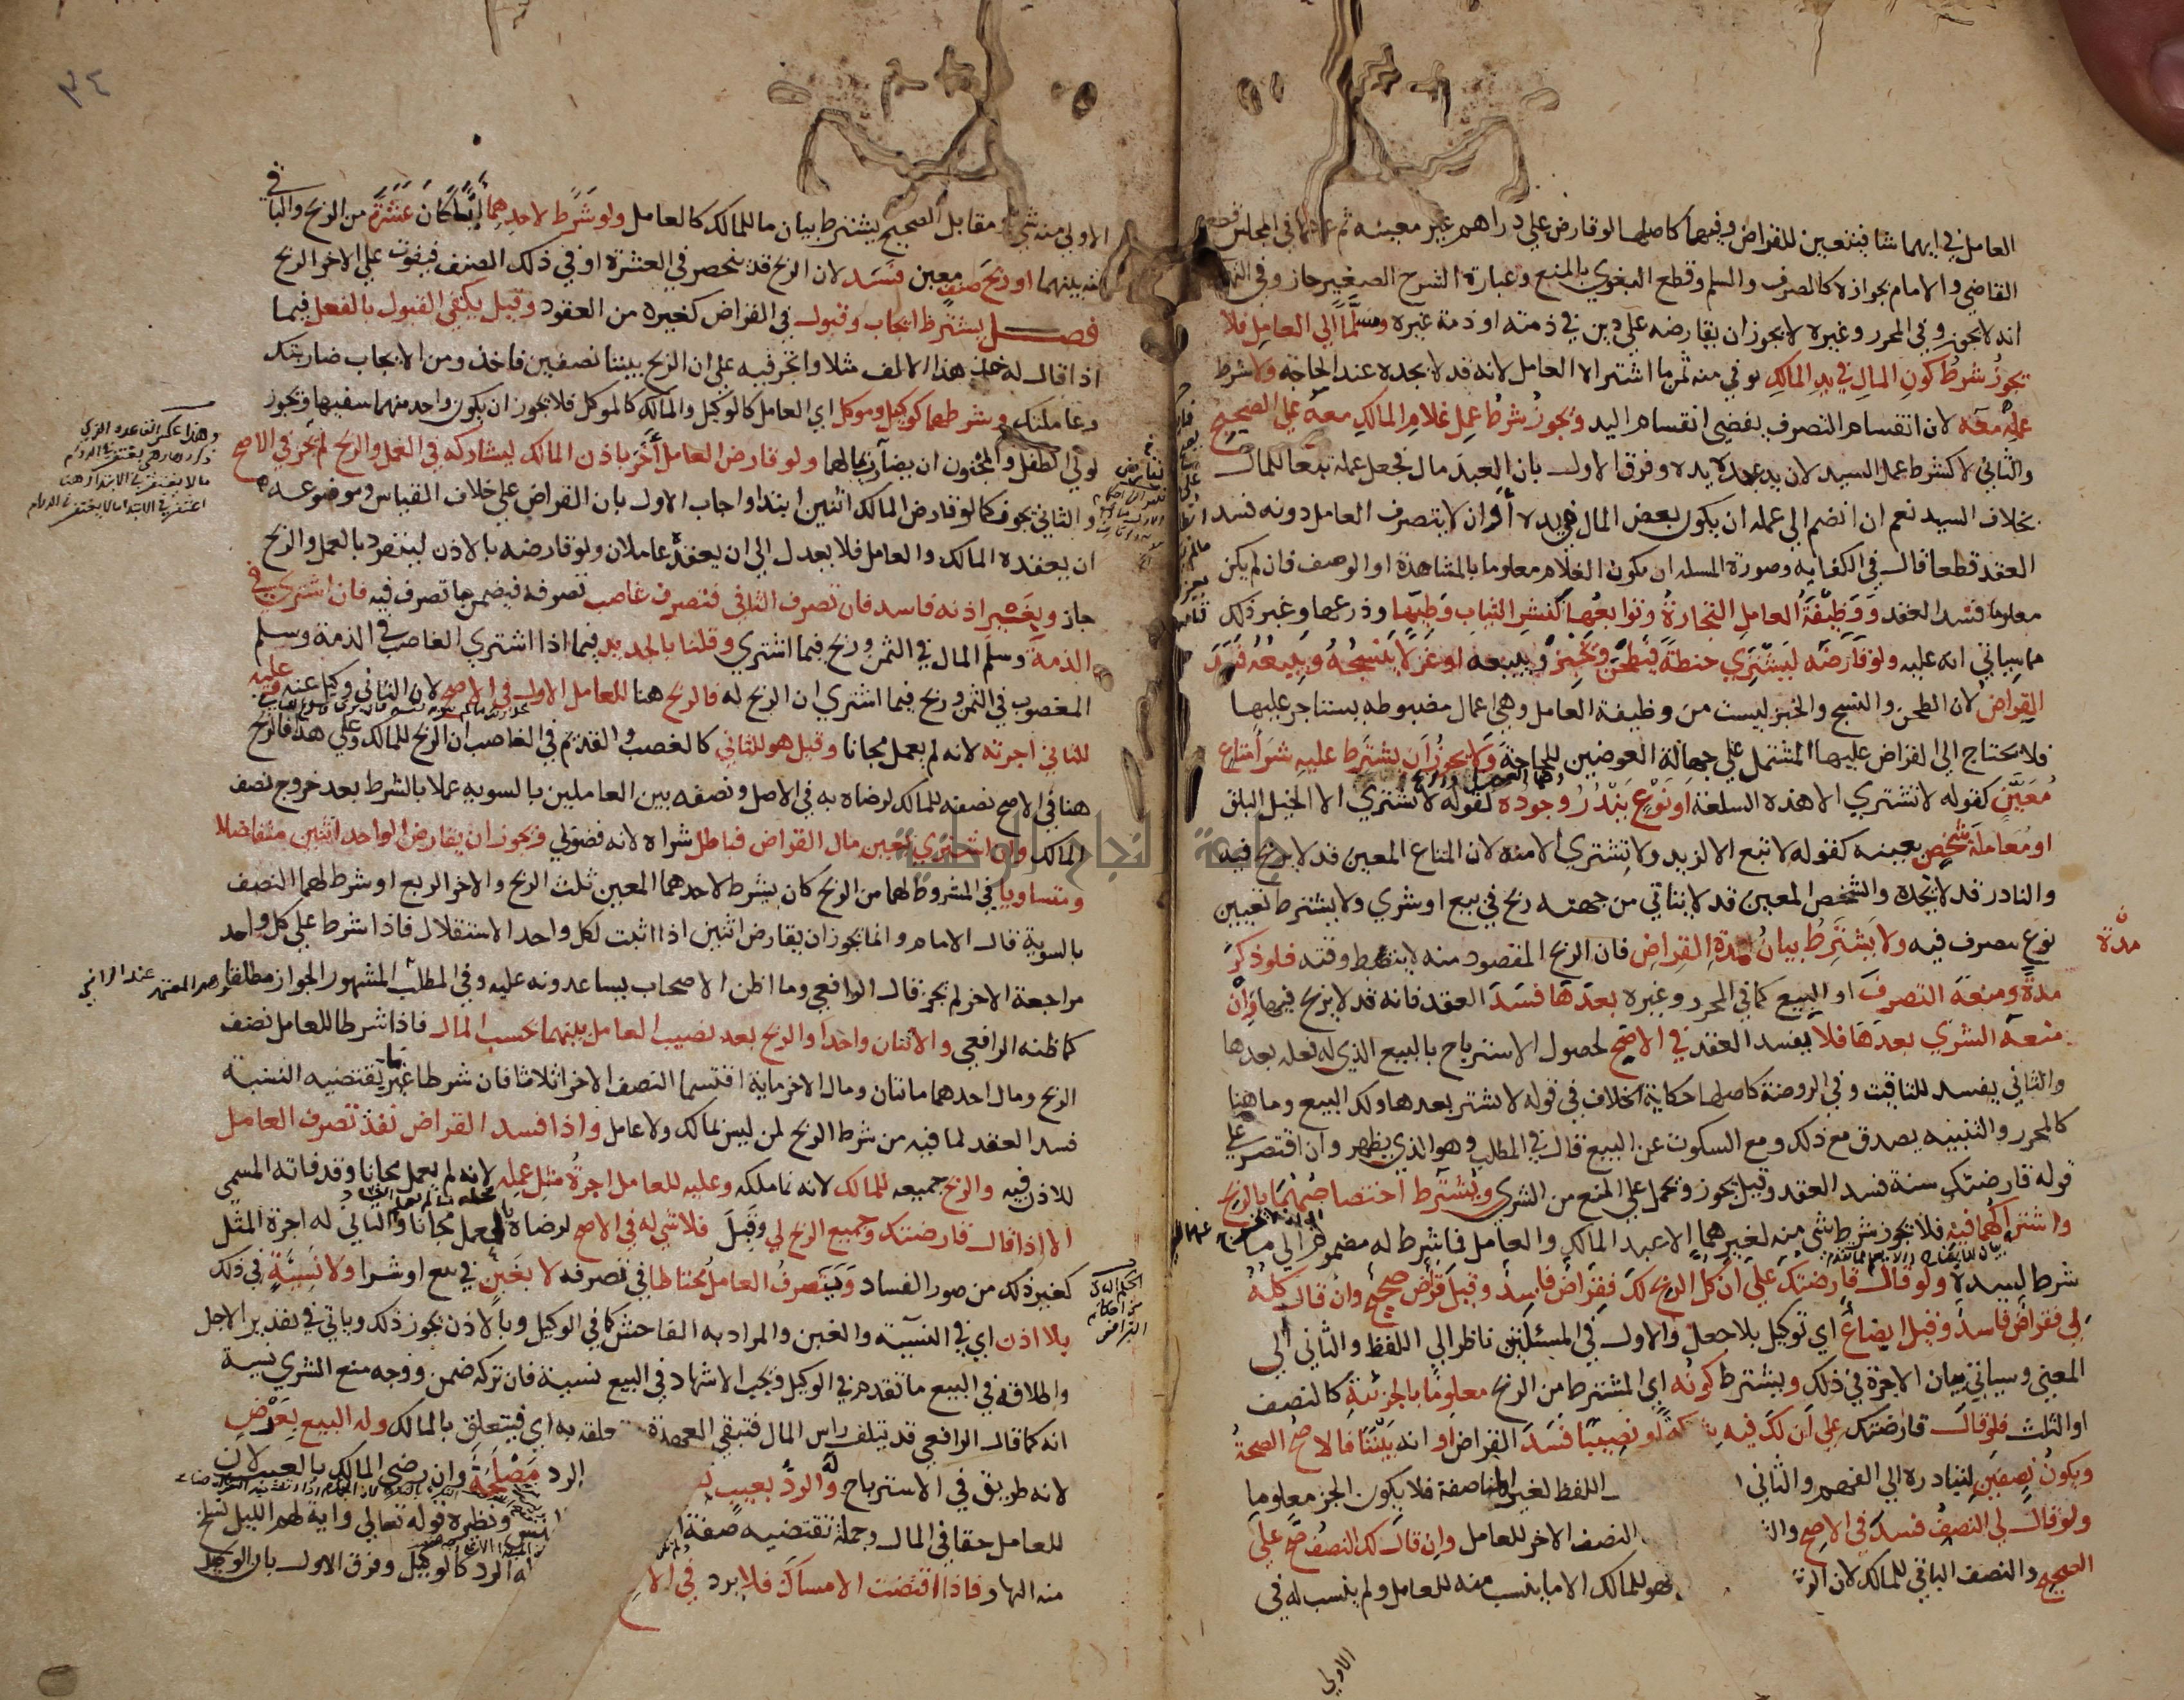 العامل في ايهما شا فيتعين للقراض وفيهما كاصلها لو قارض علي دراهم غير معينه ثم عينها في المجلس قطع
القاضي والامام بجوازه كالصرف والسلم وقطع البغوي بالمنع وعبارة الشرح الصغير جاز وفي
انه لا يجوز وفي المحرر وغيره لا يجوز ان يقارضه علي دين في ذمته او ذمة غيره ومسلما الي العامل فلا
يجوز شرط كون المال في يد المالك يوفي منه ثمن ما اشتراه العامل لانه قد لا يجده عند الحاجة ولا شرط
عمله معه لان انقسام التصرف يفضي انقسام اليد ويجوز شرط عمل غلام المالك معه علي الصحيح
والثاني لا كشرط عمل السيد لان يد عبده يده وفرق الاول بان العبد مال فجعل عمله تبعا للمال
بخلاف السيد نعم ان انضم الي عمله ان يكون بعض المال في يده او ان لا يتصرف العامل دونه فسد
العقد قطعا قال في الكفايه وصورة المسله ان يكون الغلام معلوما بالمشاهدة او الوصف فان لم يكن
معلوما فسد العقد ووظيفة العامل التجارة وتوابعها كنشر الثياب وطيها وذرعها وغير ذلك
ما سياتي انه عليه ولو قارضه ليشتري حنطة فيطحن ويخبز ويبيعه او غزلا ينسجه ويبيعه فسد
القراض لان الطحن والنسج والخبز ليست من وظيفة العامل وهي اعمال مضبوطه يستاجر عليها
فلا يحتاج الي القراض عليها المشتمل علي جهالة العوضين للحاجة ولا يجوز ان يشترط عليه شرا متاع
معين كقوله لا تشتري الا هذه السلعة او نوع يندر وجوده كقوله لا تشتري الا الخيل البلق
او معاملة شخص بعينه كقوله لا تبع الا لزيد ولا تشتري الا منه لان المتاع المعين قد لا يربح فيه
والنادر قد لا يجده والشخص المعين قد لا يتاتي من جهته ربح في بيع او شري ولا يشترط تعيين
نوع يتصرف فيه ولا يشترط بيان مدة القراض فان الربح المقصود منه لا ينضبط وقته فلو ذكر
مدة
مدة ومنعه التصرف او البيع كما في المحرر وغيره بعدها فسد العقد فانه قد لا يربح فيها وان
منعه الشري بعدها فلا يفسد العقد في الاصح لحصول الاسترباح بالبيع الذي له فعله بعدها
والثاني يفسد للتاقيت وفي الروضة كاصلها حكاية الخلاف في قوله لا تشتر بعدها ولك البيع وما هنا
كالمحرر والتنبيه يصدق مع ذلك ومع السكوت عن البيع قال في المطلب وهو الذي يظهر وان اقتصر علي
قوله قارضتك سنة فسد العقد وقيل يجوز ويحمل علي المنع من الشري ويشترط اختصاصهما بالربح
واشتراكهما فيه فلا يجوز شرط شي منه لغيرهما الا عبد المالك والعامل فما شرط له مضموم الي ما
شرط لسيده ولو قال قارضتك علي ان كل الربح لك فقراض فاسد وقيل قراض صحيح وان قال كله
لي فقراض فاسد وقيل ابضاع اي توكيل بلا جعل والاول في المسئلتين ناظر الي اللفظ والثاني الي
المعني وسياتي بيان الاجرة في ذلك ويشترط كونه اي المشترط من الربح معلوما بالجزئية كالنصف
او الثلث فلو قال قارضتك علي ان لك فيه شركة او نصيبا فسد القراض او انه بيننا فالاصح الصحة
ويكون نصفين لتبادره الي الفهم والثاني اللفظ لغير المناصفة فلا يكون الجز معلوما
ولو قال لي النصف فسد في الاصح والنصف الاخر للعامل وان قال لك النصف صح علي
الصحيح والنصف الباقي للمالك لان فهو للمالك الا ما ينسب منه للعامل ولم ينسب له في
الاولي
٣٤
الاولي منه شي ومقابل الصحيح يشترط بيان ما للمالك كالعامل ولو شرط لاحدهما كان عشرة من الربح والباقي
بينهما او ربح صنف معين فسد لان الربح قد ينحصر في العشرة او في ذلك الصنف فيفوت علي الاخر الربح
فصل يشترط ايجاب وقبول في القراض كغيره من العقود وقيل يكفي القبول بالفعل فيما
اذا قال له خذ هذا الالف مثلا واتجر فيه علي ان الربح بيننا نصفين فاخذ ومن الايجاب ضاربتك
وعاملتك وشرطهما كوكيل وموكل اي العامل كالوكيل والمالك كالموكل فلا يجوز ان يكون واحد منهما سفيها ويجوز
لولي الطفل والمجنون ان يضارب بمالهما ولو قارض العامل اخر باذن المالك ليشاركه في العمل والربح لم يجز في الاصح
والثاني يجوز كما لو قارض المالك اثنين ابتدا واجاب الاول بان القراض علي خلاف القياس وموضوعه
ان يعقده المالك والعامل فلا يعدل الي ان يعقده عاملان ولو قارضه بالاذن لينفرد بالعمل والربح
جاز وبغير اذنه فاسد فان تصرف الثاني فتصرف غاصب تصرفه فيضمن ما تصرف فيه فان اشتري في
الذمة وسلم المال في الثمن وربح فيما اشتري وقلنا بالجديد فيما اذا اشتري الغاصب في الذمة وسلم
المغصوب في الثمن وربح فيما اشتري ان الربح له فالربح هنا للعامل الاول في الاصح لان الثاني وكيل عنه وعليه
للثاني اجرته لانه لم يعمل مجانا وقيل هو للثاني كالغصب والقديم في الغاصب ان الربح للمالك وعلي هذا فالربح
هنا في الاصح نصفه للمالك لرضاه به في الاصل ونصفه بين العاملين بالسويه عملا بالشرط بعد خروج نصف
المالك وان اشتري بعين مال القراض فباطل شراه لانه فضولي ويجوز ان يقارض الواحد اثنين متفاضلا
ومتساويا في المشروط لهما من الربح كان يشرط لاحدهما المعين ثلث الربح والاخر الربع او شرط لهما النصف
بالسوية قال الامام وانما يجوز ان يقارض اثنين اذا اثبت لكل واحد الاستقلال فاذا شرط علي كل واحد
مراجعة الاخر لم يجز قال الرافعي وما اظن الاصحاب يساعدونه عليه وفي المطلب المشهور الجواز مطلقا
كما ظنه الرافعي والاثنان واحدا والربح بعد نصيب العامل بينهما بحسب المال فاذا شرطا للعامل نصف
الربح ومال احدهما ماتان ومال الاخر ماية اقتسما النصف الاخر اثلاثا فان شرطا غير ما يقتضيه النسبة
فسد العقد لما فيه من شرط الربح لمن ليس بمالك ولا عامل واذا فسد القراض نفذ تصرف العامل
للاذن فيه والربح جميعه للمالك لانه نما ملكه وعليه للعامل اجرة مثل عمله لانه لم يعمل مجانا وقد فاته المسمي
الا اذا قال قارضتك وجميع الربح لي وقبل فلا شي له في الاصح لرضاه بالعمل مجانا والثاني له اجرة المثل
كغير ذلك من صور الفساد ويتصرف العامل محتاطا في تصرفه لا بغبن في بيع او شرا ولا نسية في ذلك
بلا اذن اي في النسيئة والغبن والمراد به الفاحش كما في الوكيل وبالاذن يجوز ذلك وياتي في تقدير الاجل
واطلاقه في البيع ما تقدم في الوكيل ويجب الاشهاد في البيع نسية فان تركه ضمن ووجه منع الشري نسية
انه كما قال الرافعي قد يتلف راس المال فتبقي العهدة متعلقة به اي فيتعلق بالمالك وله البيع بعرض
لانه طريق في الاسترباح وله الرد بعيب الرد مصلحة وان رضي المالك بالعيب لان
للعامل حقا في المال وجملة تقتضيه صفة ونظيره قوله تعالي واية لهم الليل نسلخ
منه النهار فاذا اقتضت الامساك فلا يرد في الاصح له الرد كالوكيل وفرق الاول بان الوكيل